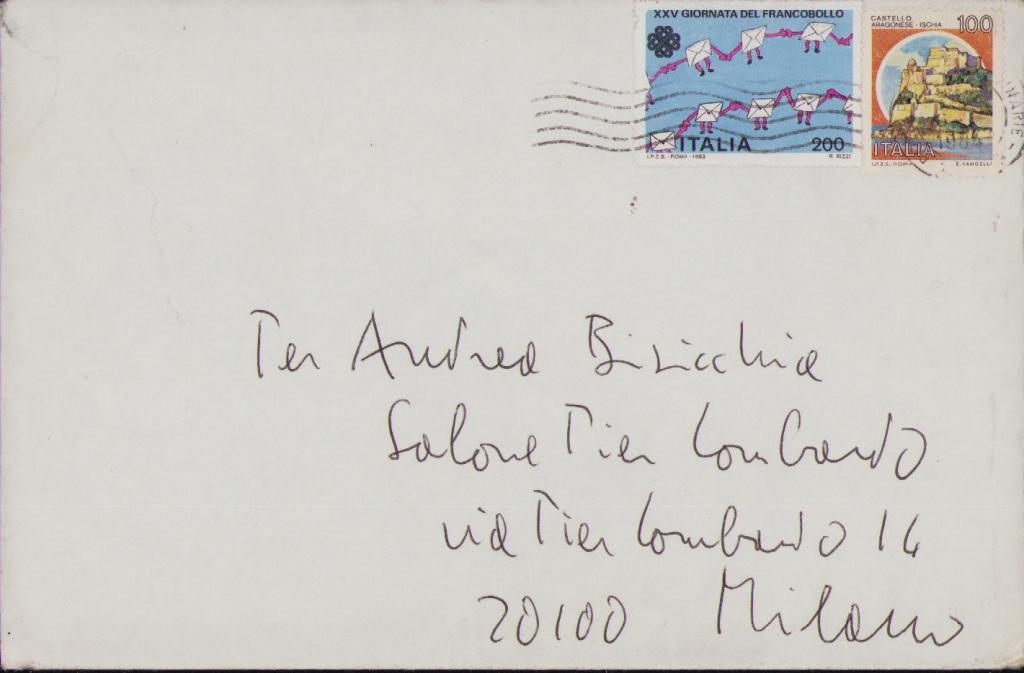 XXV GIORNATA DEL FRANCOBOLLO
ITALIA 200
I.P.Z.S. - ROMA - 1983 R. RIZZI
CASTELLO
ARAGONESE - ISCHIA 100
ITALIA
I.P.Z.S. - ROMA E. VANGELLI
Per Andrea Bisicchia
Salone Pier Lombardo
via Pier Lombardo 14
20100 Milano